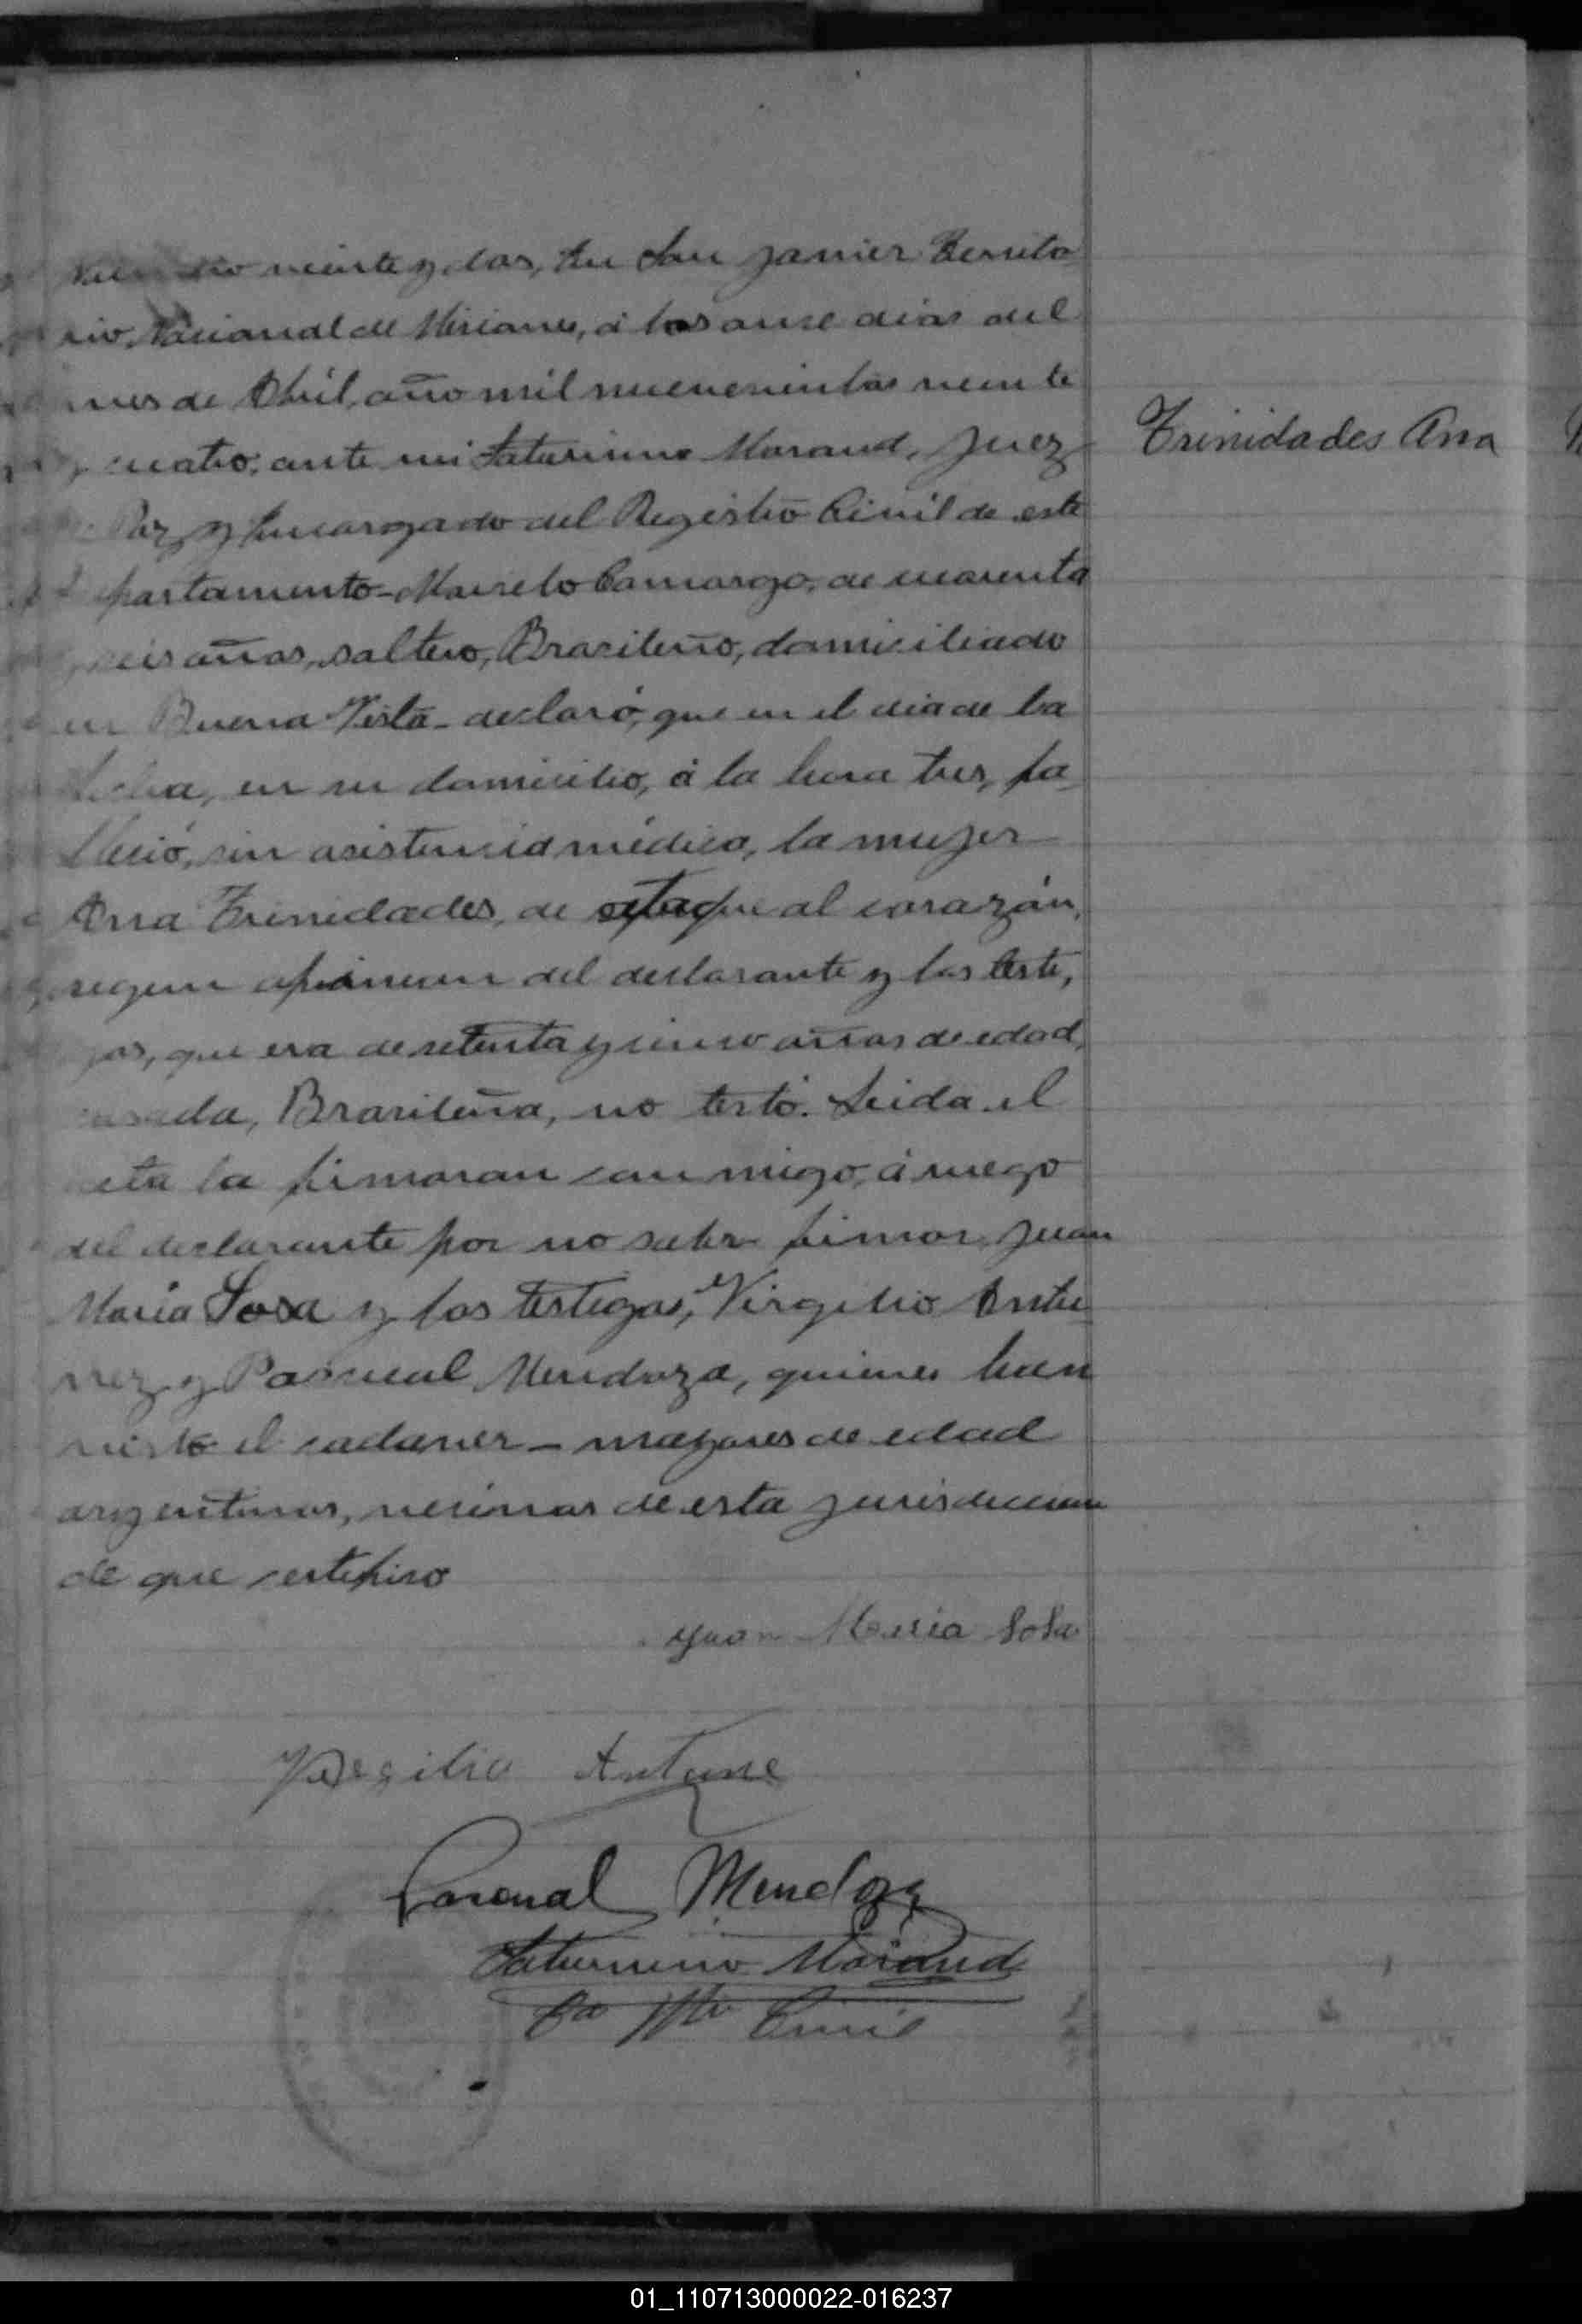 veinte y dos, En San Javier Territo
rio Nacional de Misiones, á los once dias del
mes de Abril, año mil novecientos veinte
y cuatro, ante mi Saturnino Morand, Juez
Paz y Encargado del Registro Civil de este
partamento - Marcelo Camargo, de cuarenta
y seis años, soltero, Brasileño, domiciliado
en Buena Vista - declaró, que en el dia de la
fecha, en su domicilio, á la hora tres, fa
lleció, sin asistencia médica, la mujer
Ana Trinidades, de ataque al corazón,
segun opinion del declarante y los testi,
gos, que era de setenta y cinco años de edad,
casada, Brasileña, no testó. Leida el
acta la firmaron conmigo, á ruego
del declarante por no saber firmar, Juan
Maria Sosa y los testigos, Virgilio Antu
nez y Pascual Mendoza, quienes han
visto el cadaver - mayores de edad
argentinos, vecinos de esta jurisdiccion
de que certifico
Trinidades Ana
Juan Maria Sosa
Virgilio Antune
Pascual Mendoza
Saturnino Morand
Civil
01_110713000022-016237